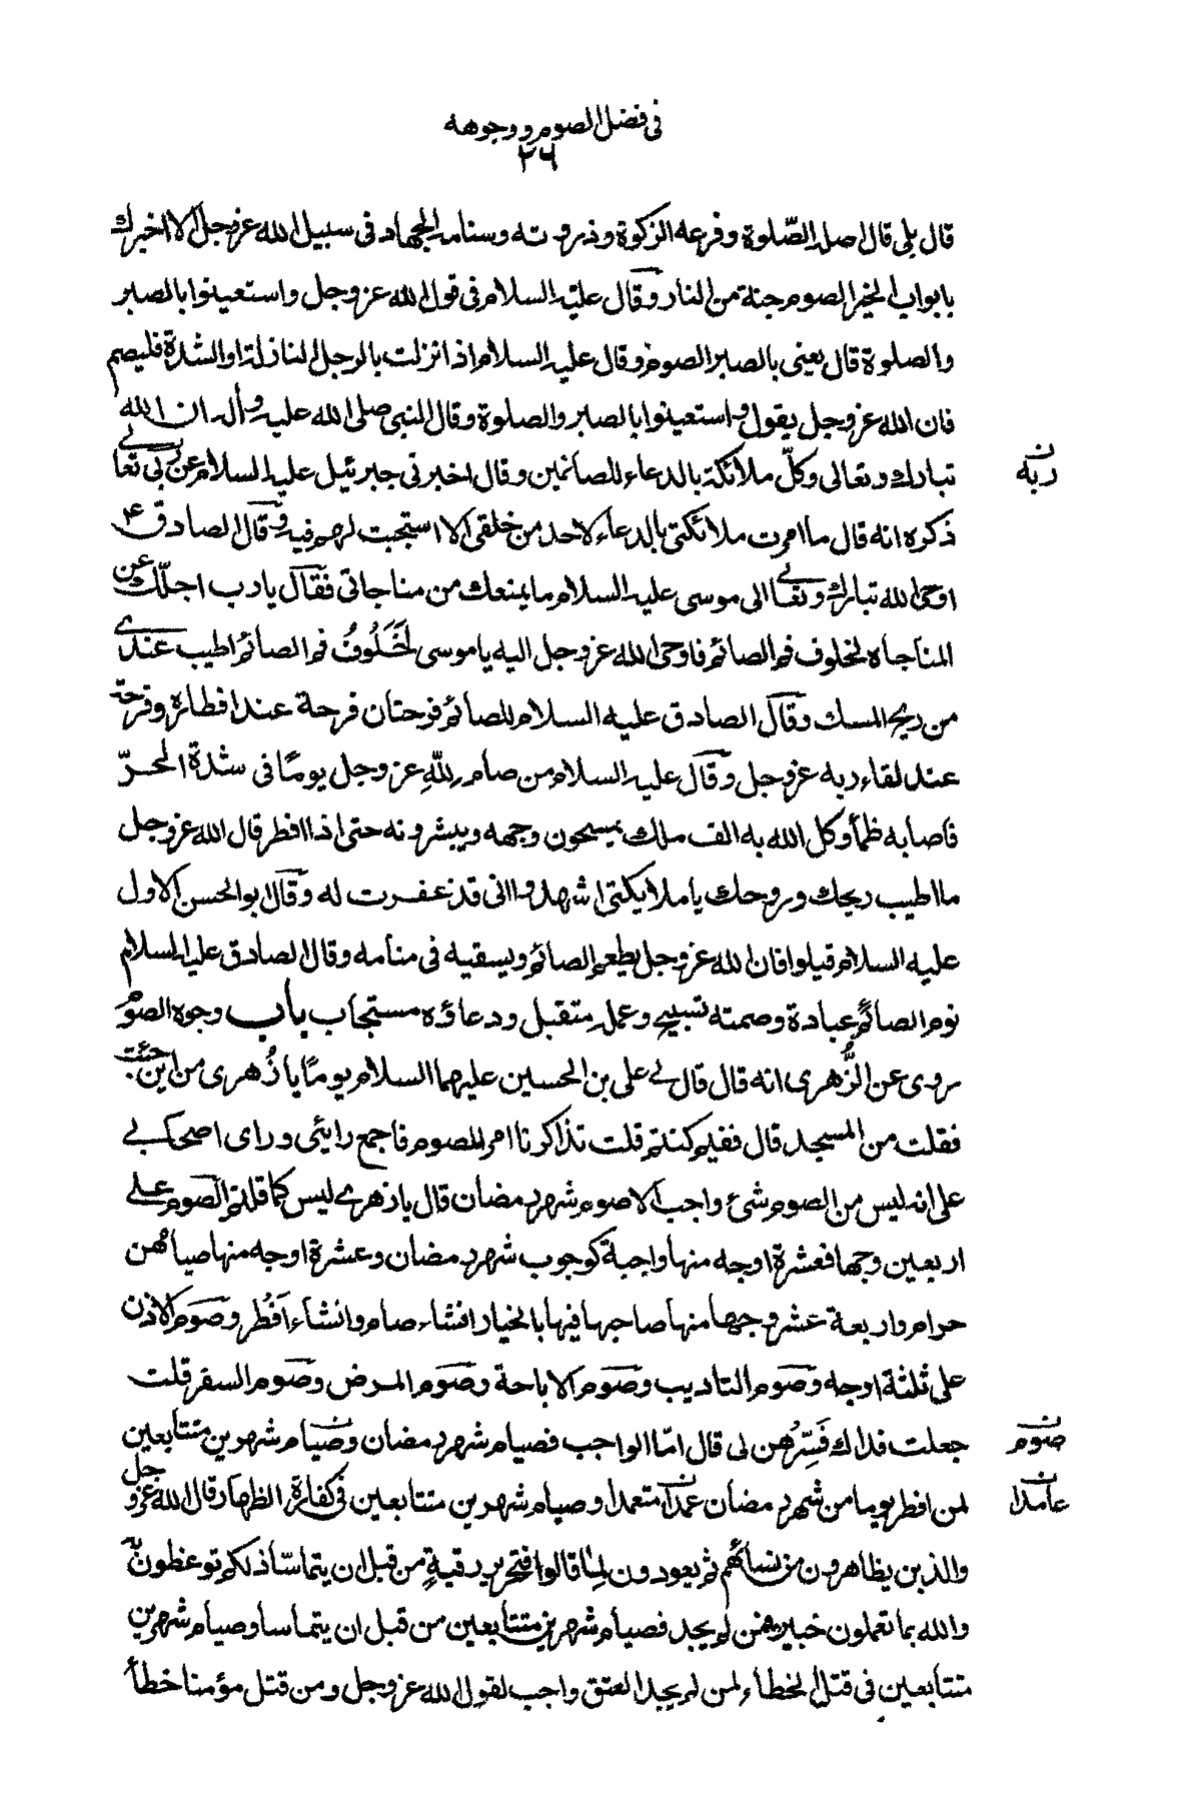 فى فضل الصوم ووجوهه
٢٦
قال بلى قال اصله الصّلوة وفرعه الزكوة وذروته وسنامه الجهاد فى سبيل الله عزوجل الا اخبرك
بابواب الخير الصوم جنة من النار وقال عليه السلام فى قول الله عزوجل واستعينوا بالصبر
والصلوة قال يعنى بالصبر الصوم وقال عليه السلام اذا نزلت بالرجل النازلة او الشدة فليصم
فان الله عزوجل يقول واستعينوا بالصبر والصلوة وقال النبى صلى الله عليه وآله ان الله
تبارك وتعالى وكّل ملائكة بالدعاء للصائمين وقال اخبرنى جبرئيل عليه السلام عن ربى تعالى
ربه ن
ذكره انه قال ما امرت ملائكتى بالدعاء لاحد من خلقى الا استجبت لهم فيه وقال الصادق ع
اوحى الله تبارك وتعالى الى موسى عليه السلام ما يمنعك من مناجاتى فقال يا رب اجلّك عن
المناجاه لخلوف فم الصائم فاوحى الله عزوجل اليه يا موسى لَخَلُوفُ فم الصائم اطيب عندى
من ريح المسك وقال الصادق عليه السلام للصائم فرحتان فرحة عند افطاره وفرحة
عند لقاء ربه عزوجل وقال عليه السلام من صام لِلّهِ عزوجل يومًا فى شدة الحرّ
فاصابه ظمأ وكل الله به الف ملك يمسحون وجهه ويبشرونه حتى اذا افطر قال الله عزوجل
ما اطيب ريحك وروحك يا ملايكتى اشهدوا انى قد غفرت له وقال ابو الحسن الاول
عليه السلام قيلوا فان الله عزوجل يطعم الصائم ويسقيه فى منامه وقال الصادق عليه السلام
نوم الصائم عبادة وصمته تسبيح وعمله متقبل ودعاؤه مستجاب باب وجوه الصوم
روى عن الزُّهرى انه قال قال لى على بن الحسين عليهما السلام يومًا يا زُهرى من اين جئت
فقلت من المسجد قال ففيم كنتم قلت تذاكرنا امر الصوم فاجمع رايئى وراى اصحابى
على انه ليس من الصوم شئ واجب الا صوم شهر رمضان قال يا زهرى ليس كما قلتم الصوم على
اربعين وجها فعشرة اوجه منها واجبة كوجوب شهر رمضان وعشرة اوجه منها صيامهن
حرام واربعة عشر وجها منها صاحبها فيها بالخيار انشاء صام وانشاء اَفْطَر وصَوم الاذن
على ثلثة اوجه وصوم التاديب وصوم الاباحة وصوم المرض وصوم السفر قلت
جعلت فداك فَسِّرهُن لى قال امّا الواجب فصيام شهر رمضان وصيام شهرين متتابعين
صوم ن
لمن افطر يوما من شهر رمضان عمدا متعمدا وصيام شهرين متتابعين فى كفارة الظهار قال الله عزوجل
عامدا ن
والذين يظاهرون من نسائهم ثم يعودون لما قالوا فتحرير رقبةٍ من قبل ان يتماسّا ذلكم توعظون به
والله بما تعملون خبير فمن لم يجد فصيام شهرين متتابعين من قبل ان يتماسا وصيام شهرين
متتابعين فى قتل الخطاء لمن لم يجد العتق واجب لقول الله عزوجل ومن قتل مؤمنا خطأ